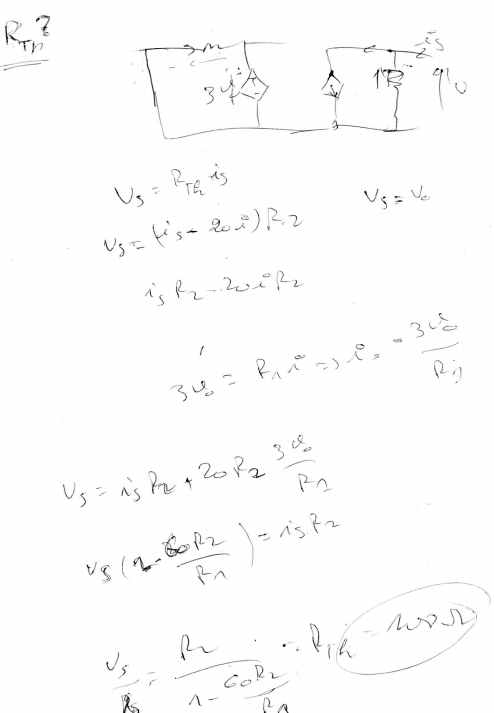 R_Th ?
i_s
3 v_o
v_s = R_Th i_s
v_s = v_o
v_s = (i_s - 20 i) R_2
i_s R_2 - 20 i R_2
3 v_o = R_1 i => i = - 3 v_o / R_1
v_s = i_s R_2 + 20 R_2 3 v_o / R_1
v_s (1 - 60 R_2 / R_1) = i_s R_2
v_s / i_s = R_2 / (1 - 60 R_2 / R_1) = R_Th = 100 Ω